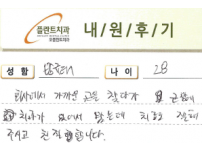 플란트치과
내/원/후/기
성 함
나 이 28
회사에서 가까운 곳을 찾다가
치과가 있어서 왔는데 치료도 잘해
주시고 친절합니다.